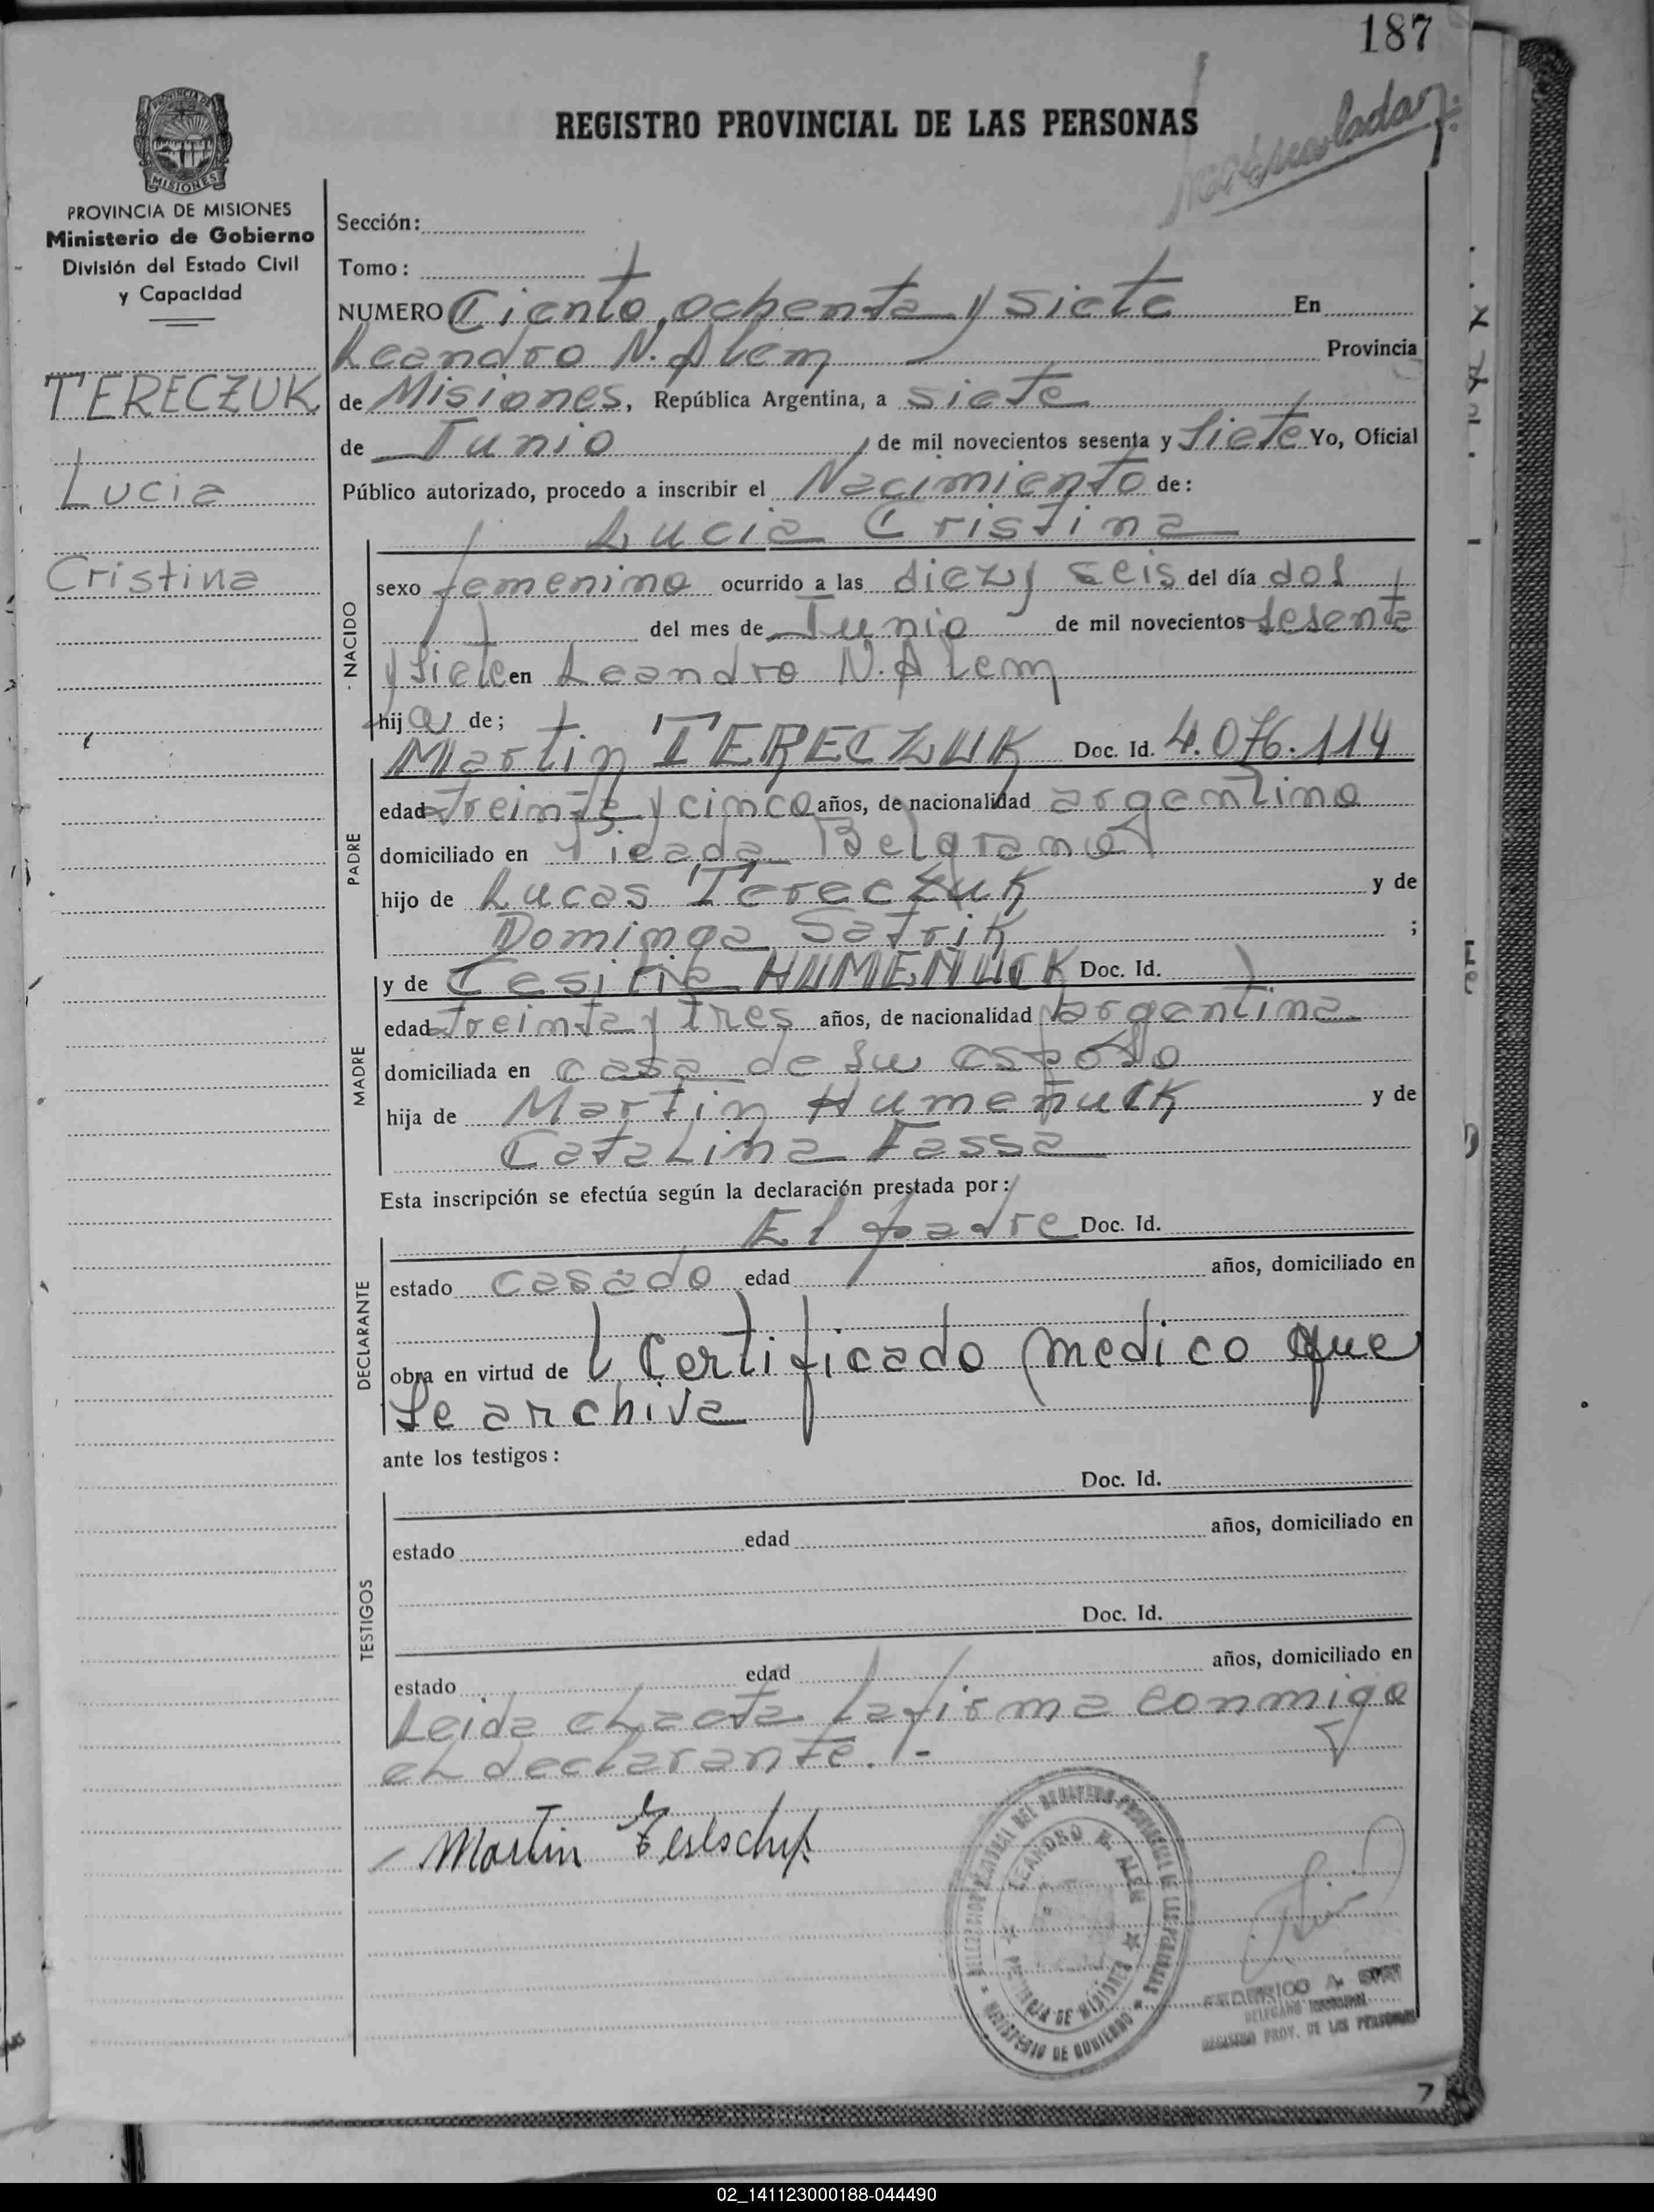 187
REGISTRO PROVINCIAL DE LAS PERSONAS
PROVINCIA DE MISIONES
Ministerio de Gobierno
División del Estado Civil
y Capacidad
TERECZUK
Lucia
Cristina
Sección:
Tomo:
NUMERO Ciento ochenta y siete En
Leandro N. Alem Provincia
de Misiones, República Argentina, a siete
de Junio de mil novecientos sesenta y siete Yo, Oficial
Público autorizado, procedo a inscribir el Nacimiento de:
Lucia Cristina
NACIDO
sexo femenino ocurrido a las diez y seis del día dos
del mes de Junio de mil novecientos sesenta
y siete en Leandro N. Alem
hija de;
Martin TERECZUK Doc. Id. 4.076.114
PADRE
edad treinta y cinco años, de nacionalidad argentino
domiciliado en Picada Belgrano
hijo de Lucas Tereczuk y de
Dominga Satrik ;
y de HUMEÑUCK Doc. Id.
MADRE
edad treinta y tres años, de nacionalidad argentina
domiciliada en casa de su esposo
hija de Martin Humeñuck y de
Catalina Fassa
Esta inscripción se efectúa según la declaración prestada por:
El padre Doc. Id.
DECLARANTE
estado casado edad años, domiciliado en
obra en virtud de Certificado medico que
se archiva
ante los testigos:
Doc. Id.
TESTIGOS
estado edad años, domiciliado en
Doc. Id.
estado edad años, domiciliado en
Leida el acta la firma conmigo
el declarante.-
Martin
LEANDRO N. ALEM
PROVINCIA DE MISIONES
MINISTERIO DE GOBIERNO
FEDERICO A.
REGISTRO PROV. DE LAS PERSONAS
7
02_141123000188-044490